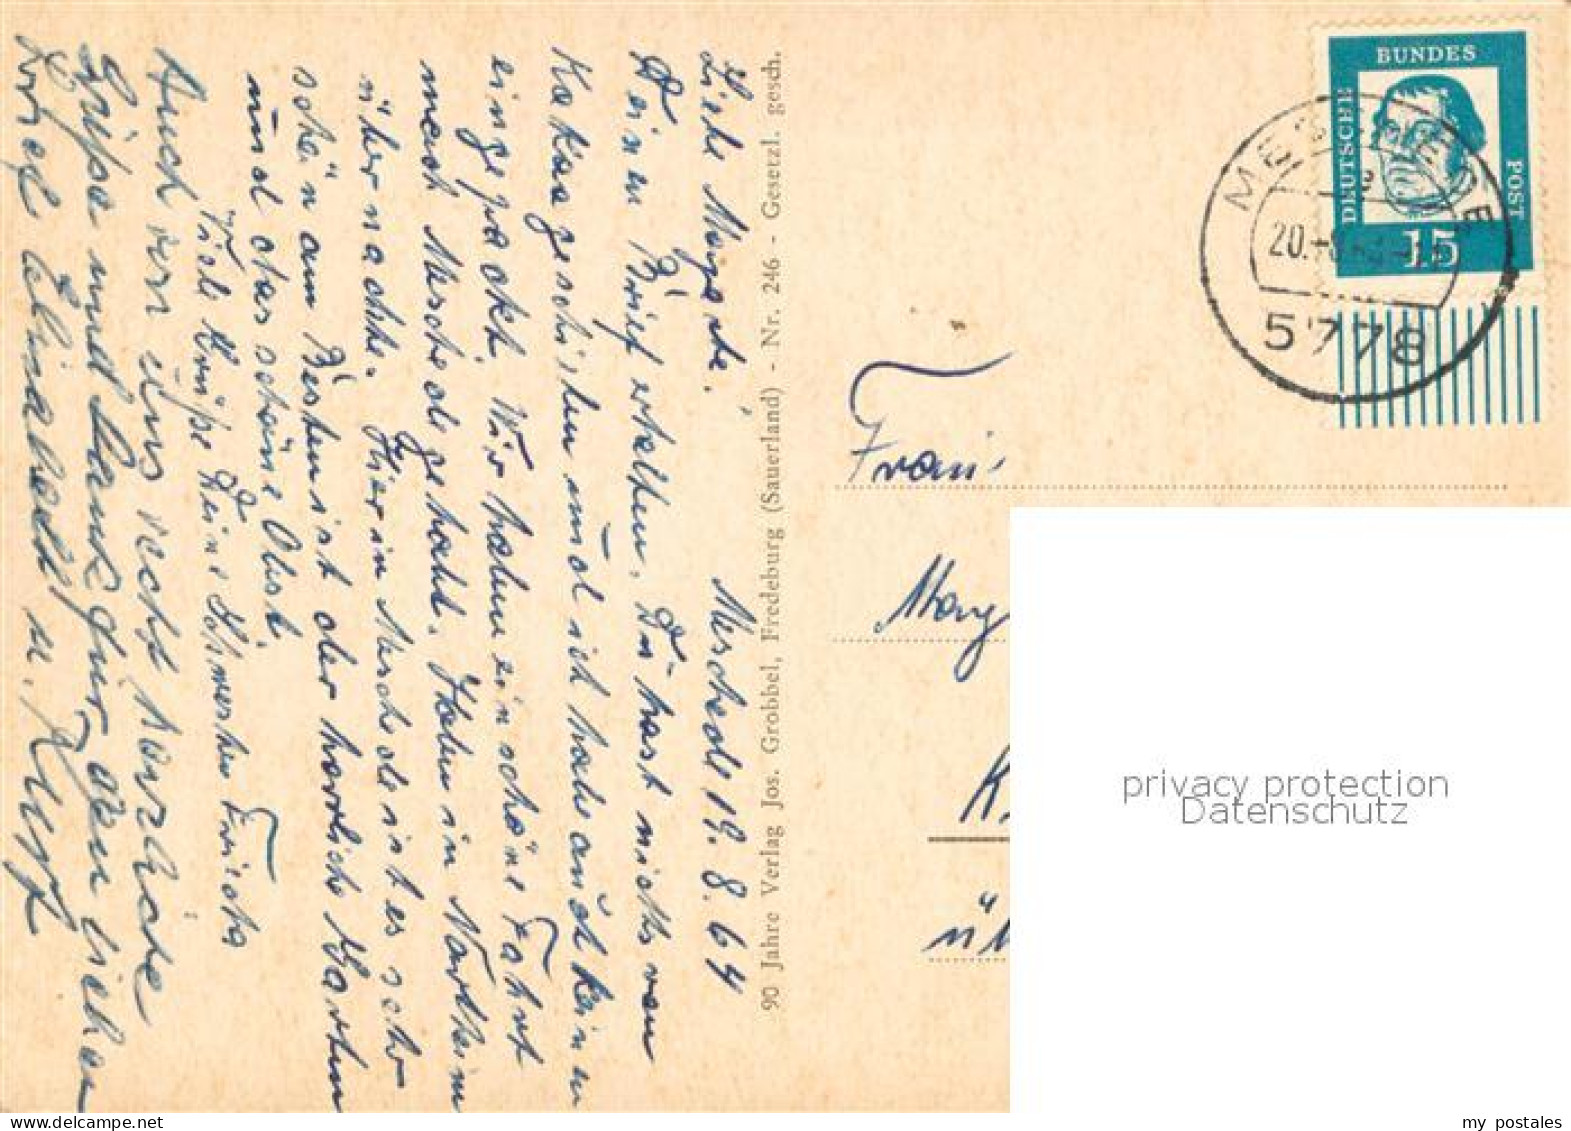 Meschede 19.8.64
Liebe Margarete.
Deinen Brief erhalten, Du hast nichts von
Kakaa geschriben und ich habe auch keinen
eingepackt. Wir haben ein schöne Fahrt
nach Meschede gehabt. Haben in
übernachte. Hier in Meschede ist es sehr
schön am Besten ist der harrliche Garten
und das schöne Obst.
Viele Grüße Deine
Auch von uns recht herzliche
Grüße und Dank für den lieben
u.
90 Jahre Verlag Jos. Grobbel, Fredeburg (Sauerland) - Nr. 246 - Gesetzl. gesch.
BUNDES
DEUTSCHE
POST
15
MESCHEDE
20.
5778
Frau
K
privacy protection
Datenschutz
www.delcampe.net
my_postales